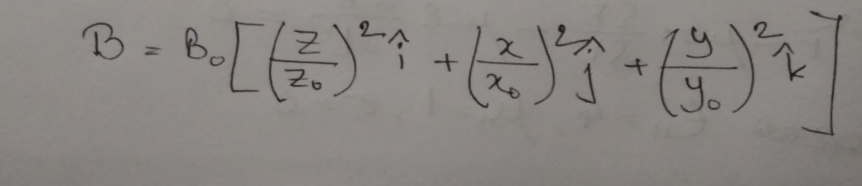 B = B₀[(z/z₀)² î + (x/x₀)² ĵ + (y/y₀)² k̂]